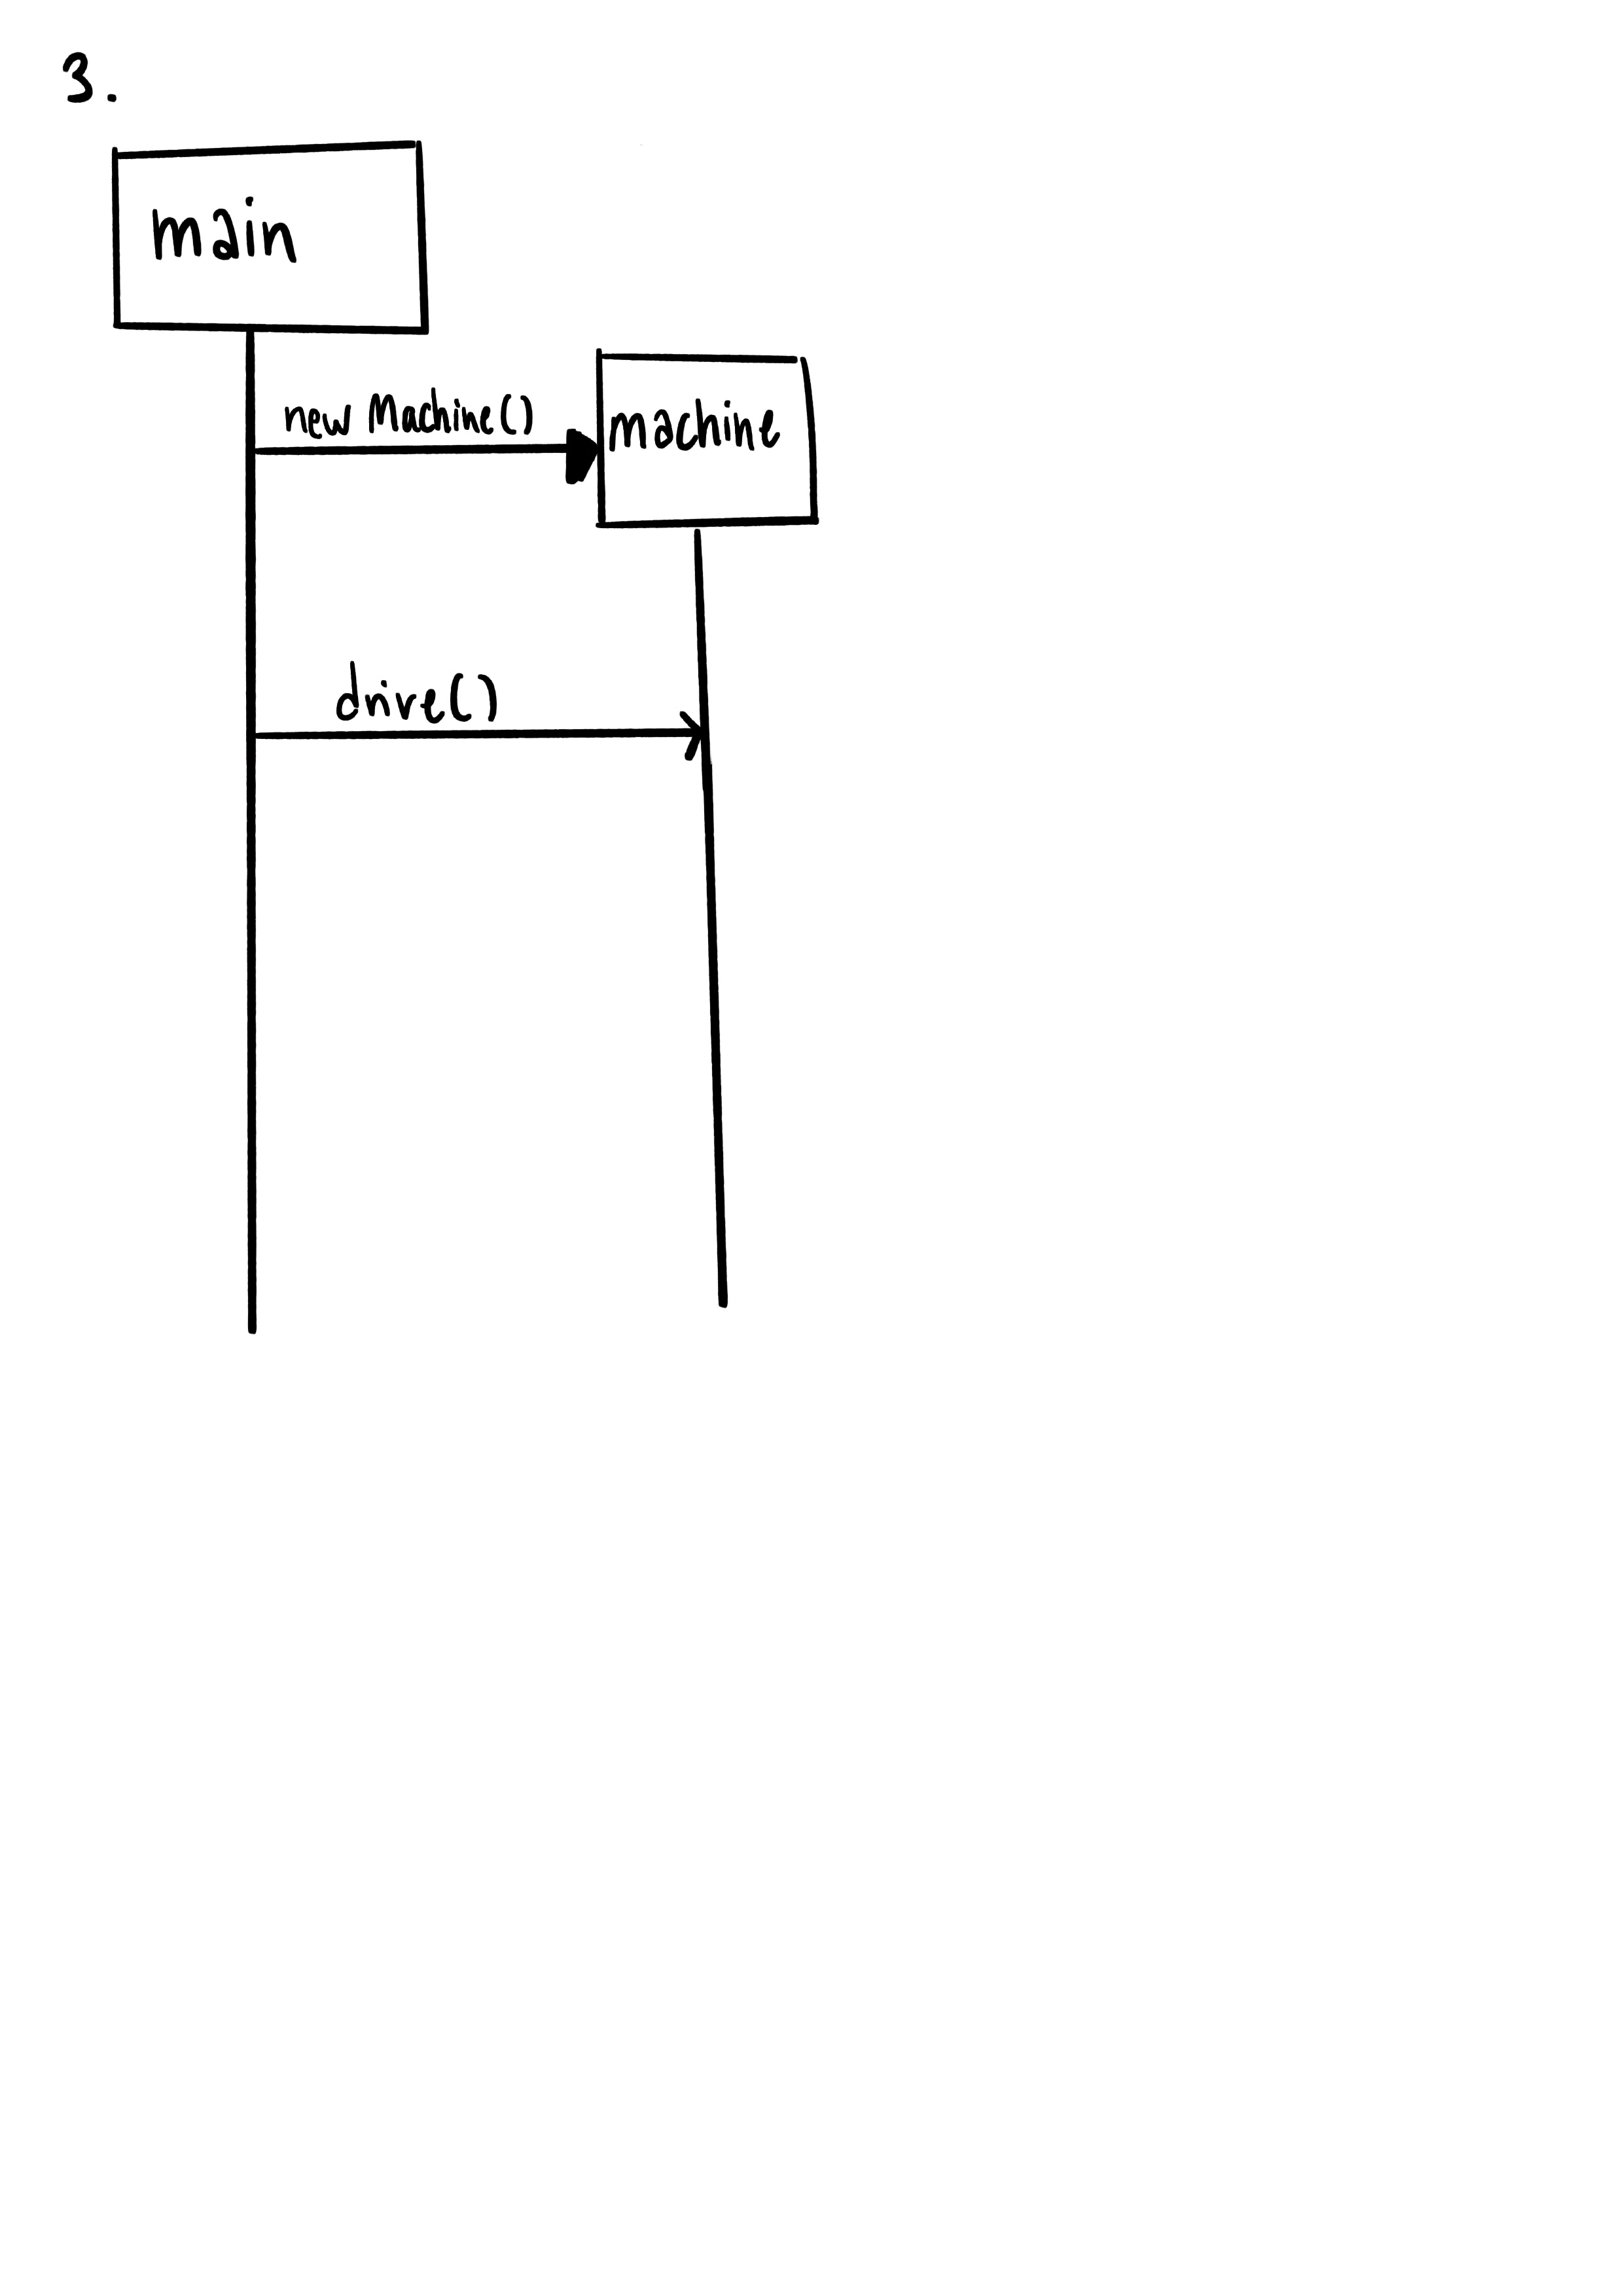 3.
main
new Machine()
machine
drive()